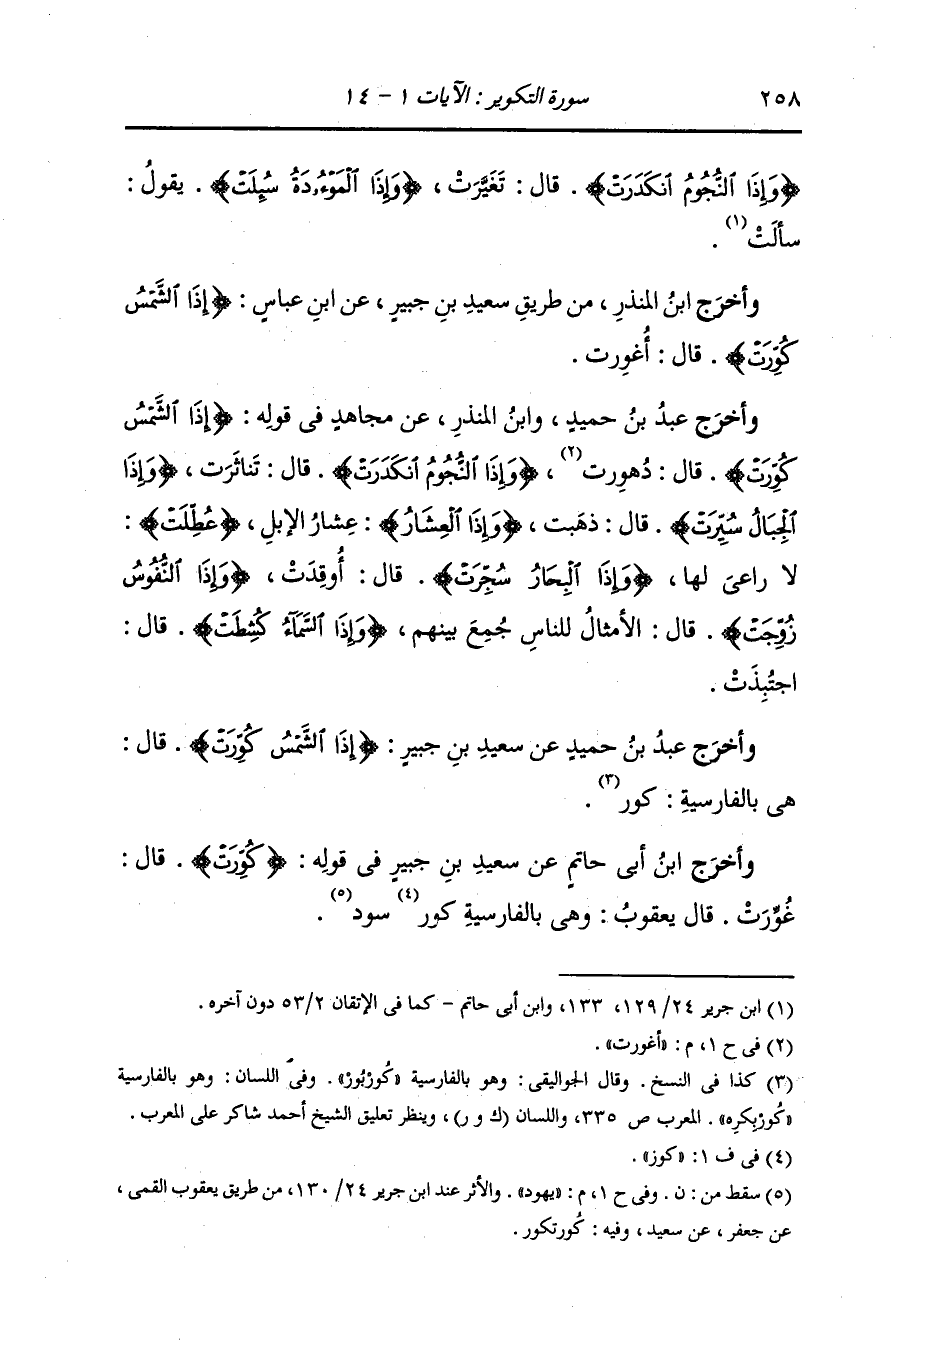 ٢٥٨ سورة التكوير : الآيات ١ - ١٤
﴿وَإِذَا ٱلنُّجُومُ ٱنكَدَرَتْ﴾ . قال : تَغَيَّرَتْ ، ﴿وَإِذَا ٱلْمَوْءُۥدَةُ سُئِلَتْ﴾ . يقولُ :
سأَلَتْ(١) .
وأخرَج ابنُ المنذرِ ، من طريقِ سعيدِ بنِ جبيرٍ ، عن ابنِ عباسٍ : ﴿إِذَا ٱلشَّمْسُ
كُوِّرَتْ﴾ . قال : أُغوِرت .
وأخرَج عبدُ بنُ حميدٍ ، وابنُ المنذرِ ، عن مجاهدٍ فى قولِه : ﴿إِذَا ٱلشَّمْسُ
كُوِّرَتْ﴾ . قال : دُهوِرت(٢) ، ﴿وَإِذَا ٱلنُّجُومُ ٱنكَدَرَتْ﴾ . قال : تَناثَرَت ، ﴿وَإِذَا
ٱلْجِبَالُ سُيِّرَتْ﴾ . قال : ذهَبت ، ﴿وَإِذَا ٱلْعِشَارُ﴾ : عِشارُ الإبلِ ، ﴿عُطِّلَتْ﴾ :
لا راعىَ لها ، ﴿وَإِذَا ٱلْبِحَارُ سُجِّرَتْ﴾ . قال : أُوقِدَتْ ، ﴿وَإِذَا ٱلنُّفُوسُ
زُوِّجَتْ﴾ . قال : الأمثالُ للناسِ جُمِعَ بينهم ، ﴿وَإِذَا ٱلسَّمَآءُ كُشِطَتْ﴾ . قال :
اجتُبِذَتْ .
وأخرَج عبدُ بنُ حميدٍ عن سعيدِ بنِ جبيرٍ : ﴿إِذَا ٱلشَّمْسُ كُوِّرَتْ﴾ . قال :
هى بالفارسيةِ : كور(٣) .
وأخرَج ابنُ أبى حاتمٍ عن سعيدِ بنِ جبيرٍ فى قولِه : ﴿كُوِّرَتْ﴾ . قال :
غُوِّرَتْ . قال يعقوبُ : وهى بالفارسيةِ كور(٤) سود(٥) .
(١) ابن جرير ٢٤/ ١٢٩، ١٣٣، وابن أبى حاتم - كما فى الإتقان ٥٣/٢ دون آخره .
(٢) فى ح ١، م : «أغورت» .
(٣) كذا فى النسخ . وقال الجواليقى : وهو بالفارسية «كُورْبُورْ» . وفى اللسان : وهو بالفارسية
«كُورْبِكِره» . المعرب ص ٣٣٥، واللسان (ك و ر) ، وينظر تعليق الشيخ أحمد شاكر على المعرب .
(٤) فى ف ١: «كوز» .
(٥) سقط من : ن . وفى ح ١، م : «يهود» . والأثر عند ابن جرير ٢٤/ ١٣٠، من طريق يعقوب القمى ،
عن جعفر ، عن سعيد ، وفيه : كُورتكور .